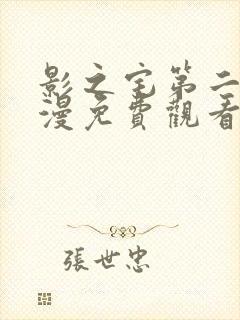 影之宅第二
漫免費觀看
張世忠